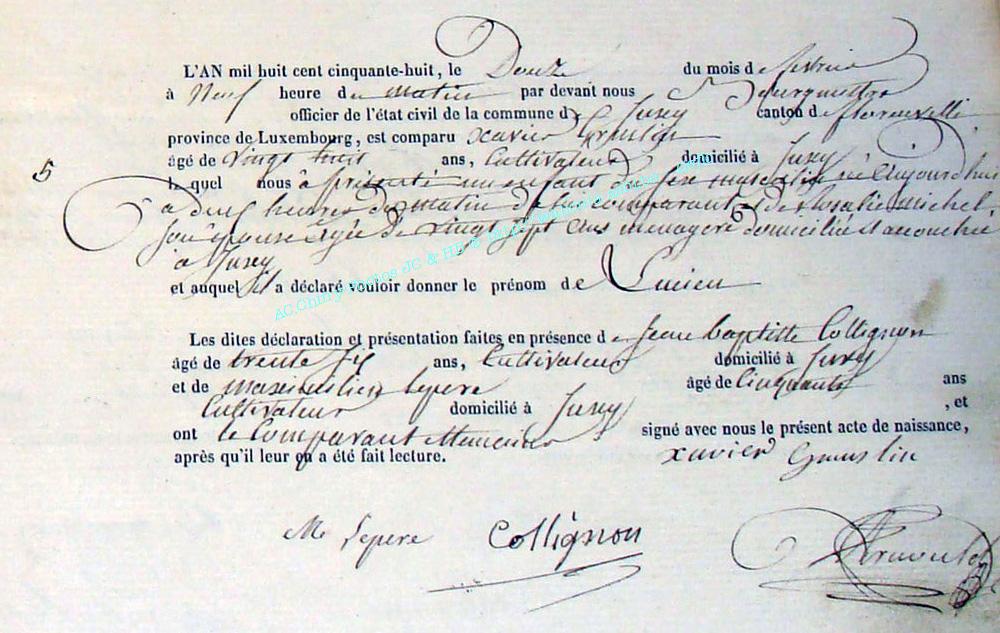 L'AN mil huit cent cinquante-huit, le Douze du mois de fevrier
à Neuf heure du matin par devant nous
officier de l'état civil de la commune de Jusey canton de florenville
province de Luxembourg, est comparu xavier Gouslin
5
âgé de vingt huit ans, Cultivateur domicilié à Jusey
le quel nous à présenté un enfant du sexe masculin né aujourd'hui
a deux heures du matin de lui comparant & de Rosalie michel
son épouse agée de vingt sept ans menagere domiciliée & accouchée
à Jusey
et auquel il a déclaré vouloir donner le prénom de Lucien
AC Chiny Photos JC & HB
Les dites déclaration et présentation faites en présence de Jean baptiste Collignon
âgé de trente six ans, Cultivateur domicilié à Jusey
et de maximilien lepere âgé de Cinquante ans
Cultivateur domicilié à Jusey , et
ont le Comparant & temoins signé avec nous le présent acte de naissance,
après qu'il leur en a été fait lecture. xavier Gouslin
M Lepere Collignon